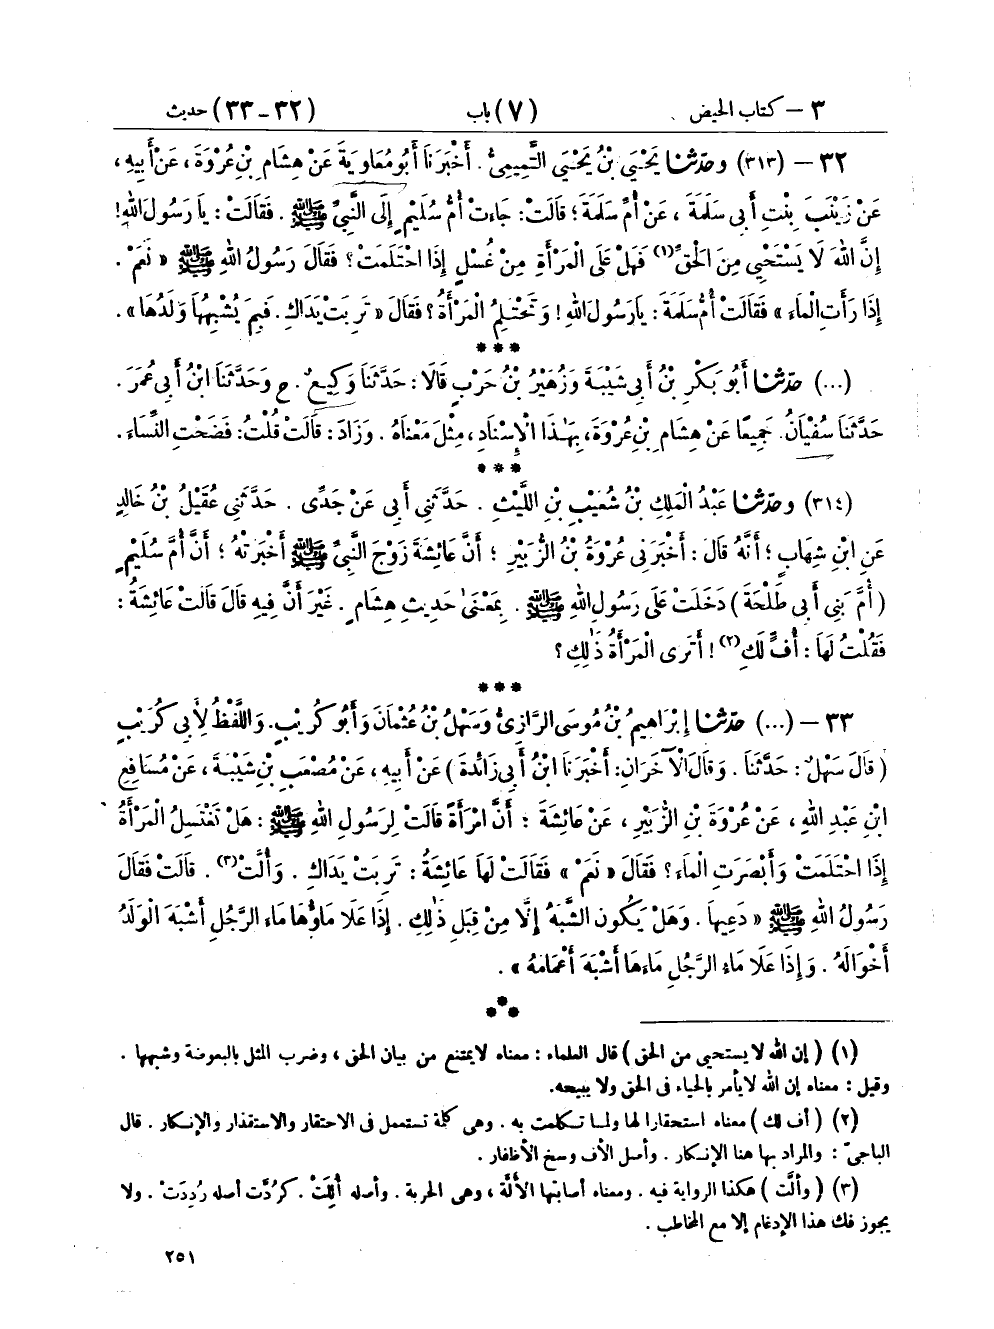 ٣ – كتاب الحيض (٧) باب (٣٢-٣٣) حديث
٣٢ – (٣١٣) وحَدَّثَنَا يَحْيَىٰ بْنُ يَحْيَى التَّمِيمِىُّ . أَخْبَرَنَا أَبُو مُعَاوِيَةَ عَنْ هِشَامِ بْنِ عُرْوَةَ ، عَنْ أَبِيهِ ،
عَنْ زَيْنَبَ بِنْتِ أَبِى سَلَمَةَ ، عَنْ أُمِّ سَلَمَةَ ؛ قَالَتْ : جَاءَتْ أُمُّ سُلَيْمٍ إِلَى النَّبِىِّ ﷺ . فَقَالَتْ : يَا رَسُولَ اللهِ !
إِنَّ اللهَ لَا يَسْتَحْيِى مِنَ الْحَقِّ(١) فَهَلْ عَلَى الْمَرْأَةِ مِنْ غُسْلٍ إِذَا احْتَلَمَتْ ؟ فَقَالَ رَسُولُ اللهِ ﷺ « نَعَمْ .
إِذَا رَأَتِ الْمَاءَ » فَقَالَتْ أُمُّ سَلَمَةَ : يَا رَسُولَ اللهِ ! وَتَحْتَلِمُ الْمَرْأَةُ ؟ فَقَالَ « تَرِبَتْ يَدَاكِ . فَبِمَ يُشْبِهُهَا وَلَدُهَا » .
***
(...) حَدَّثَنَا أَبُو بَكْرِ بْنُ أَبِى شَيْبَةَ وَزُهَيْرُ بْنُ حَرْبٍ قَالَا : حَدَّثَنَا وَكِيعٌ . ح وَحَدَّثَنَا ابْنُ أَبِى عُمَرَ .
حَدَّثَنَا سُفْيَانُ . جَمِيعًا عَنْ هِشَامِ بْنِ عُرْوَةَ ، بِهَٰذَا الْإِسْنَادِ ، مِثْلَ مَعْنَاهُ . وَزَادَ : قَالَتْ قُلْتُ : فَضَحْتِ النِّسَاءَ .
***
(٣١٤) وحَدَّثَنَا عَبْدُ الْمَلِكِ بْنُ شُعَيْبِ بْنِ اللَّيْثِ . حَدَّثَنِى أَبِى عَنْ جَدِّى . حَدَّثَنِى عُقَيْلُ بْنُ خَالِدٍ
عَنِ ابْنِ شِهَابٍ ؛ أَنَّهُ قَالَ : أَخْبَرَنِى عُرْوَةُ بْنُ الزُّبَيْرِ ؛ أَنَّ عَائِشَةَ زَوْجَ النَّبِىِّ ﷺ أَخْبَرَتْهُ ؛ أَنَّ أُمَّ سُلَيْمٍ
( أُمَّ بَنِى أَبِى طَلْحَةَ ) دَخَلَتْ عَلَى رَسُولِ اللهِ ﷺ . بِمَعْنَىٰ حَدِيثِ هِشَامٍ . غَيْرَ أَنَّ فِيهِ قَالَ قَالَتْ عَائِشَةُ :
فَقُلْتُ لَهَا : أُفٍّ لَكِ(٢) ! أَتَرَى الْمَرْأَةُ ذَٰلِكِ ؟
***
٣٣ – (...) حَدَّثَنَا إِبْرَاهِيمُ بْنُ مُوسَى الرَّازِىُّ وَسَهْلُ بْنُ عُثْمَانَ وَأَبُو كُرَيْبٍ . وَاللَّفْظُ لِأَبِى كُرَيْبٍ
( قَالَ سَهْلٌ : حَدَّثَنَا . وَقَالَ الْآخَرَانِ : أَخْبَرَنَا ابْنُ أَبِى زَائِدَةَ ) عَنْ أَبِيهِ ، عَنْ مُصْعَبِ بْنِ شَيْبَةَ ، عَنْ مُسَافِعِ
ابْنِ عَبْدِ اللهِ ، عَنْ عُرْوَةَ بْنِ الزُّبَيْرِ ، عَنْ عَائِشَةَ ؛ أَنَّ امْرَأَةً قَالَتْ لِرَسُولِ اللهِ ﷺ : هَلْ تَغْتَسِلُ الْمَرْأَةُ
إِذَا احْتَلَمَتْ وَأَبْصَرَتِ الْمَاءَ ؟ فَقَالَ « نَعَمْ » فَقَالَتْ لَهَا عَائِشَةُ : تَرِبَتْ يَدَاكِ . وَأُلَّتْ(٣) . قَالَتْ فَقَالَ
رَسُولُ اللهِ ﷺ « دَعِيهَا . وَهَلْ يَكُونُ الشَّبَهُ إِلَّا مِنْ قِبَلِ ذَٰلِكِ . إِذَا عَلَا مَاؤُهَا مَاءَ الرَّجُلِ أَشْبَهَ الْوَلَدُ
أَخْوَالَهُ . وَإِذَا عَلَا مَاءُ الرَّجُلِ مَاءَهَا أَشْبَهَ أَعْمَامَهُ » .
***
(١) ( إن الله لا يستحيى من الحق ) قال العلماء : معناه لا يمتنع من بيان الحق ، وضرب المثل بالبعوضة وشبهها .
وقيل : معناه إن الله لا يأمر بالحياء فى الحق ولا يبيحه.
(٢) ( أف لك ) معناه استحقارا لها ولما تكلمت به . وهى كلمة تستعمل فى الاحتقار والاستقذار والإنكار . قال
الباجىّ : والمراد بها هنا الإنكار . وأصل الأف وسخ الأظافار .
(٣) ( وألَّت ) هكذا الرواية فيه . ومعناه أصابتها الألّة ، وهى الحربة . وأصله أُلِلَتْ . كرُدَّت أصله رُدِدَتْ . ولا
يجوز فك هذا الإدغام إلا مع المخاطب .
٢٥١